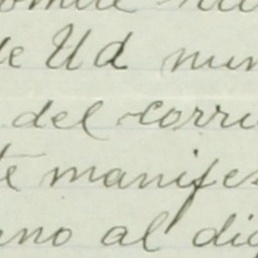 de Ud nun
del corri
te manifes
eno al dig